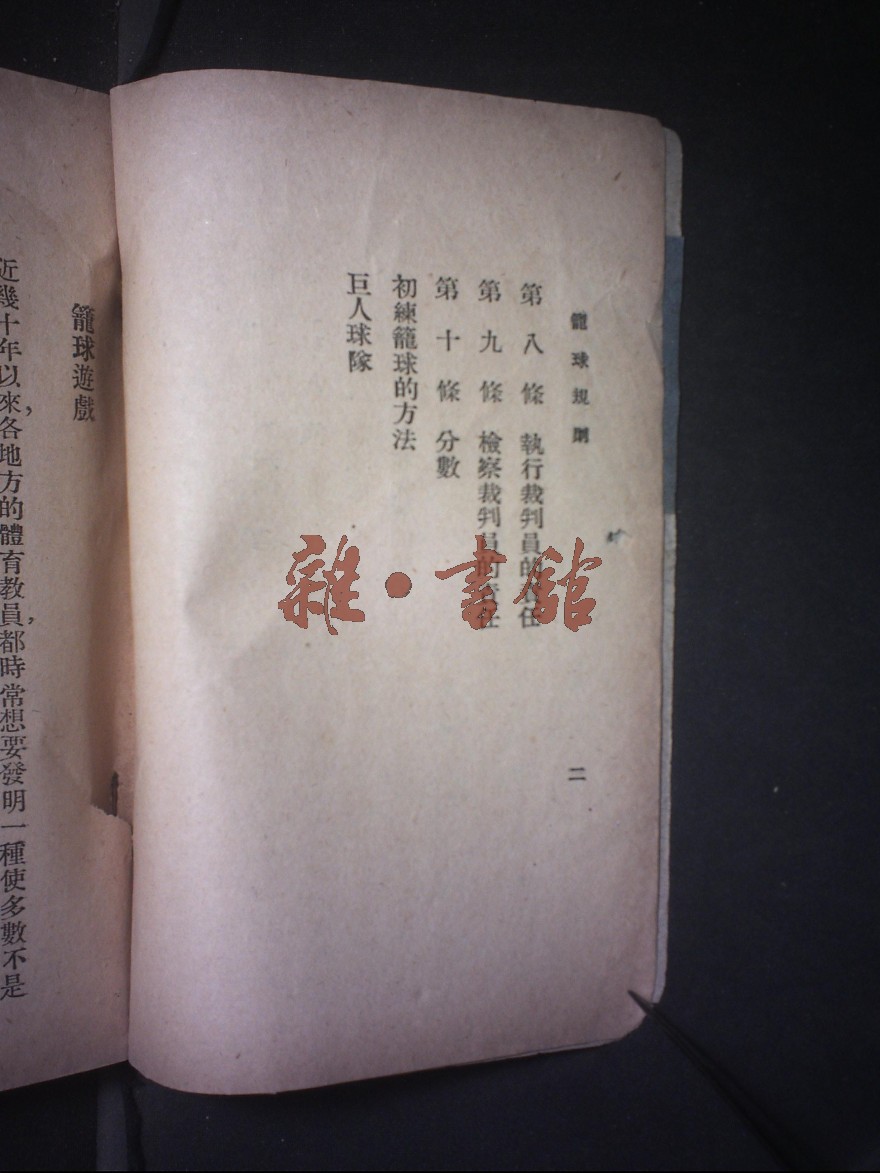 籠球規則
第八條 執行裁判員的責任
第九條 檢察裁判員的責任
第十條 分數
初練籠球的方法
巨人球隊
二
籠球遊戲
近幾十年以來，各地方的體育教員，都時常想要發明一種使多數不是
雜·書館